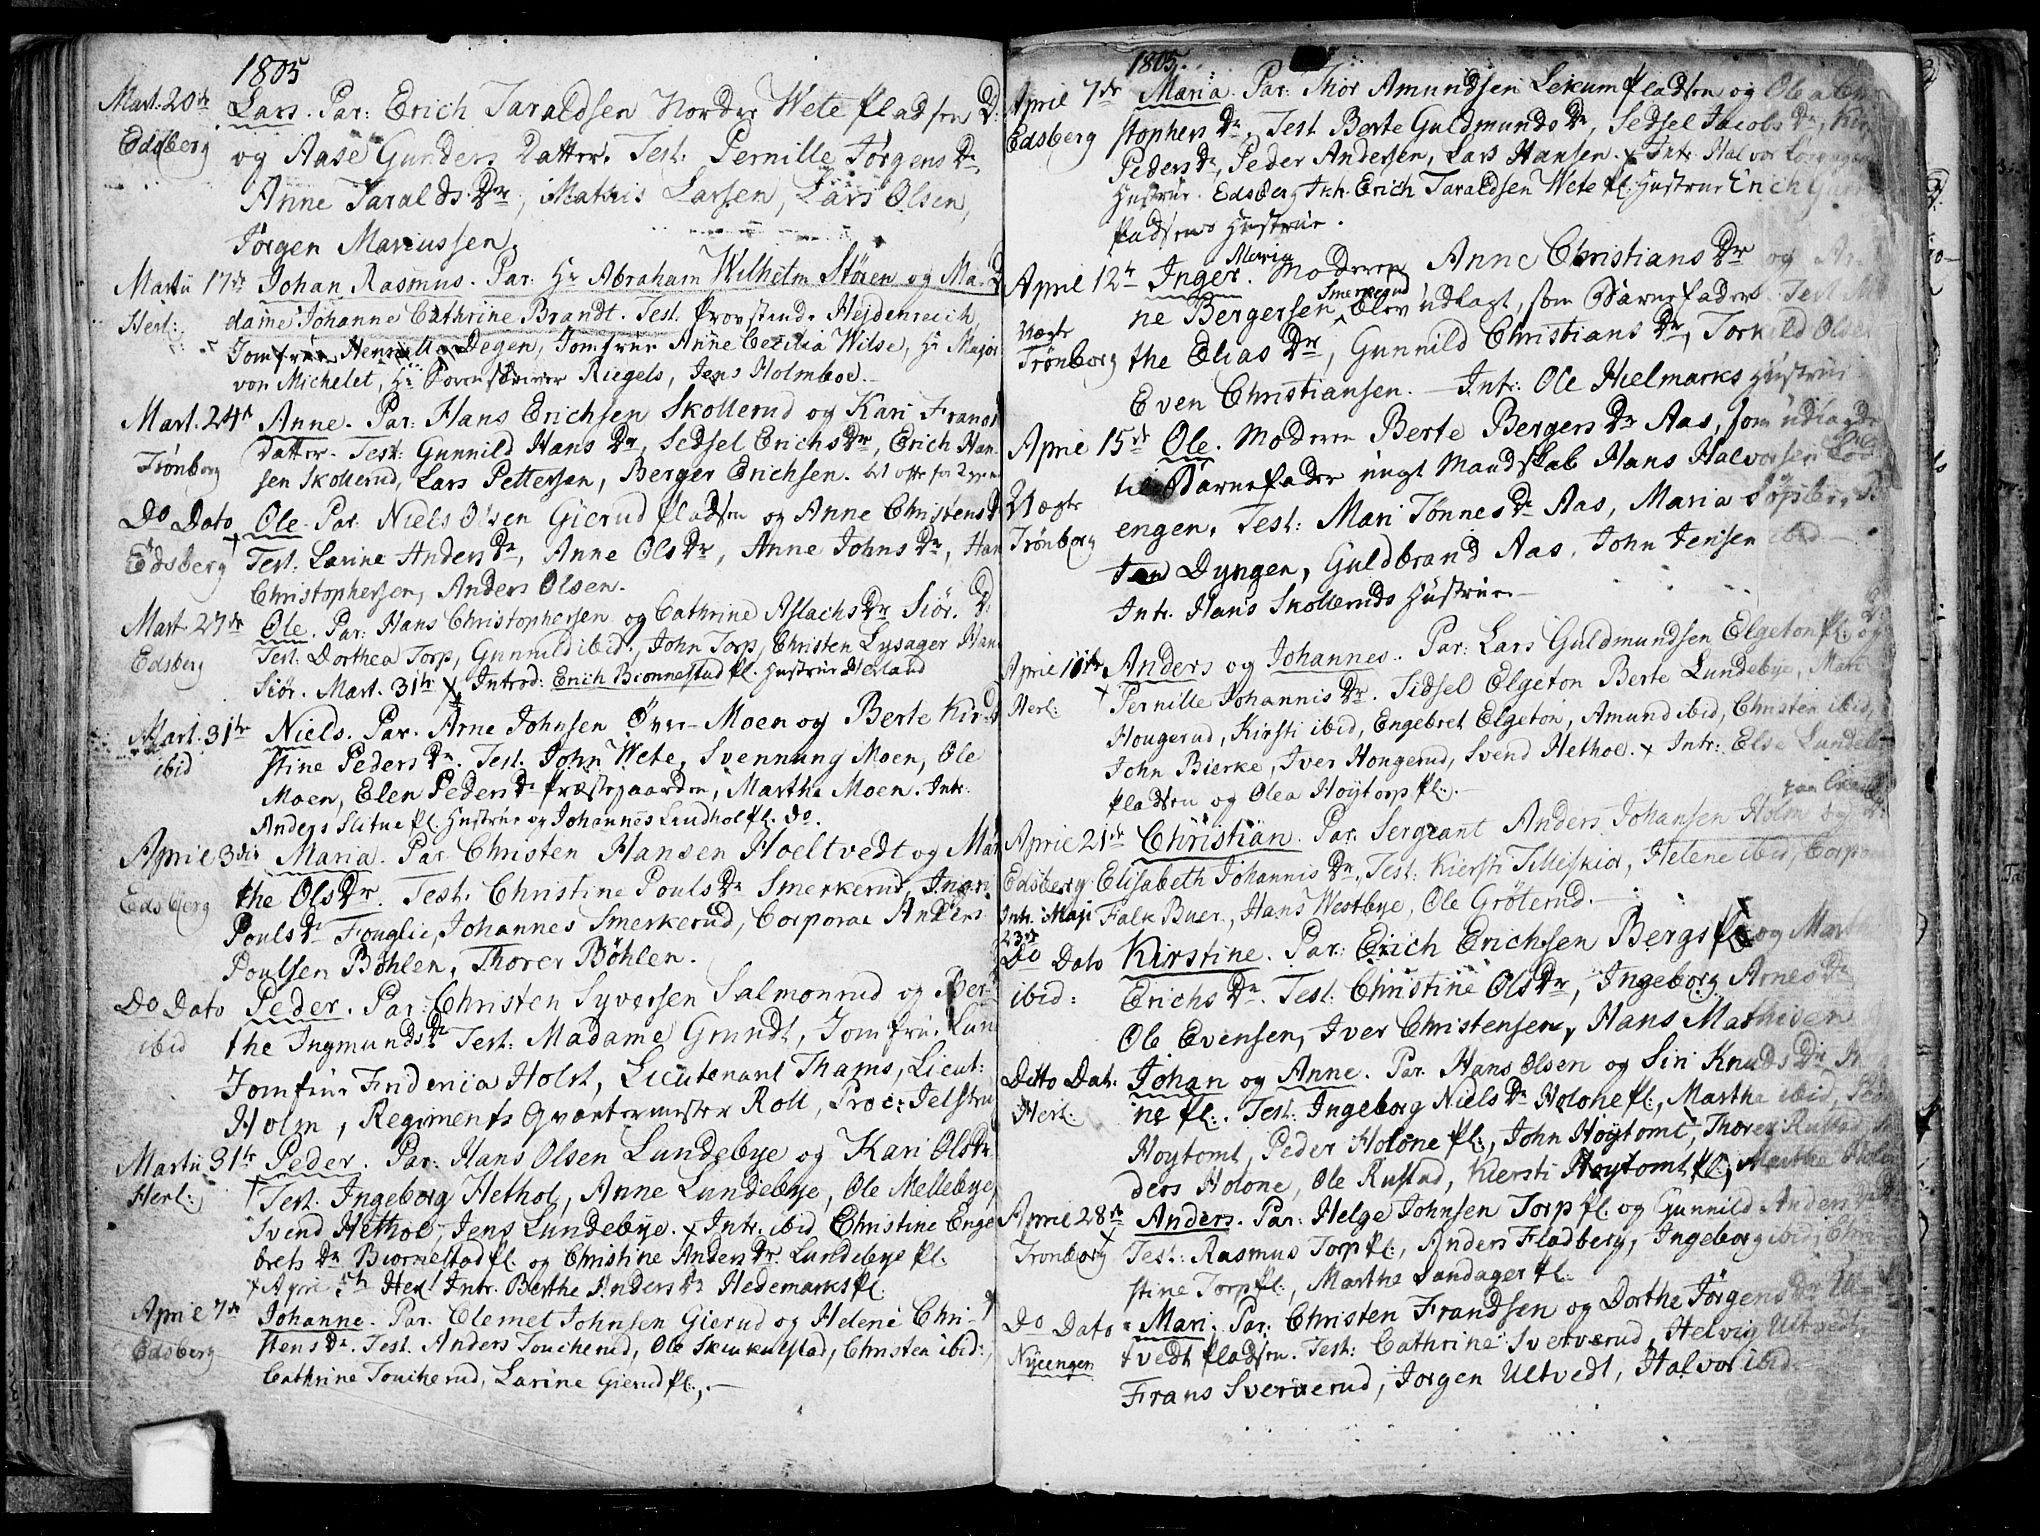 1805
Mart. 20de Lars. Par: Erich Taraldsen Nordre Wete Pladsen
Edsberg og Aase Gunders Datter. Test: Pernille Jørgens Dr
Anne Taralds Dr, Mathis Larsen, Lars Olsen,
Jørgen Mariussen.
Martii 17de Johan Rasmus. Par. Hr Abraham Wilhelm Stören og Ma-
Herl: dame Johanne Cathrine Brandt. Test. Provstinde Hejdenreich
Jomfrue Degen, Jomfrue Anne Cecilia Wilse, Hr Major
von Michelet, Hr Sorenskriver Riegels, Jens Holmboe.
Mart. 24de Anne. Par: Hans Erichsen Skollerud og Kari Frands
Trönborg Datter. Test: Gunnild Hans Dr, Sedsel Erichs Dr, Erich Han-
sen Skollerud, Lars Pettersen, Berger Erichsen.
Do Dato Ole. Par. Niels Olsen Gierud Pladsen og Anne Christens D
Edsberg Test. Larine Anders Dr, Anne Ols Dr, Anne Johns Dr, Han
Christophersen, Anders Olsen.
Mart. 27de Ole. Par: Hans Christophersen og Cathrine Aslachs Dr Siör.
Edsberg Test: Dorthea Torp, Gunnild ibid:, John Torp, Christen Lysager Hans
Siör. Mart. 31te x Introd: Erich Bionnestad Pl. Hustrue Herland
Mart. 31te Niels. Par. Arne Johnsen Över-Moen og Berte Kir-
ibid stine Peders Dr. Test. John Wete, Svennung Moen, Ole
Moen, Elen Peders Dr Præstegaarden, Marthe Moen. Intr.
Anders Slitue Pl. Hustrue og Johannes Lundhol Pl. do.
April 3die Maria. Par. Christen Hansen Hoeltvedt og Mar
Edsberg the Ols Dr. Test. Christine Pouls Dr Smerkerud, Ingri
Pouls Dr Fouglie, Johannes Smerkerud, Corporal Anders
Poulsen Böhlen, Thorer Böhlen.
Do Dato Peder. Par. Christen Syversen Salmonrud og Ber-
ibid the Ingmunds Dr Test: Madame Grundt, Jomfrue Lund
Jomfrue Friderica Holst, Lieutenant Thams, Lieut:
Holm, Regiments Qvartermester Roll, Proc: Jelstru
Martii 31te Peder. Par: Hans Olsen Lundebye og Kari Ols Dr.
Herl: Test. Ingeborg Hethol, Anne Lundebye, Ole Mellebye,
Svend Hethol, Jens Lundebye. x Intr. ibid Christine Enge
brets Dr Biornestad Pl. og Christine Anders Dr. Lundebye Pl:
+ April 5te Herl Intr. Berthe Anders Dr Hedemarks Pl.
April 7de Johanne. Par. Clemet Johnsen Gierud og Helene Chri-
Edsberg stens Dr. Test. Anders Toucherud, Ole Skiukulstad, Christen ibid:,
Cathrine Toucherud, Larine Gierud Pl.
1805.
April 7de Maria. Par: Thor Amundsen Lekum Pladsen og Olea
Edsberg stophers Dr. Test. Berte Guldmunds Dr, Sedsel Jacobs Dr,
Peders Dr, Peder Andersen, Lars Hansen. x Intr. Halvor
Hustrue. Edsberg Intr. Erich Taraldsen Wete Pl. Hustrue Erich
Pladsens Hustrue.
April 12te Inger Maria. Moderen Anne Christians Dr og Ar-
Uægte ne Bergersen Smerkerud blev udlagt, som Barnefader. Test. Ma
Trönborg the Elias Dr, Gunnild Christians Dr, Torkild Olsen
Even Christiansen. — Intr: Ole Hielmarks Hustrue
April 15de Ole. Moderen Berte Bergers Dr Aas, som udlagde
til Barnefader ungt Mandskab Hans Halvorsen
Uægte engen. Test: Mari Tönnes Dr Aas, Maria
Trönborg Dyngen, Guldbrand Aas, John Jensen ibid.
Intr. Hans Skolleruds Hustrue.
Anders og Johannes. Par: Lars Guldmundsen Elgeton Pl: og
Herl: Pernille Johannis Dr. Sidsel Elgeton Berte Lundebye, Mari
Hougerud, Kirsti ibid, Engebret Elgeton, Amund ibid, Christen ibid,
John Bierke, Iver Hougerud, Svend Hethol. x Intr: Else Lundeb
Pladsen og Olea Hoytorp Pl:
April 21de Christian. Par. Sergeant Anders Johansen Holm og
Edsberg Elisabeth Johannis Dr. Test: Kiersti Tilleskior, Helene ibid, Corpo
Intr: Maji 23de Falk Buer, Hans Westbye, Ole Gröterud.
Do Dato Kirstine. Par: Erich Erichsen Bergs Pl og Marth
ibid: Erichs Dr. Test: Christine Ols Dr, Ingeborg Arnes Dr
Ole Evensen, Iver Christensen, Hans Mathisen
Ditto Dat: Johan og Anne. Par. Hans Olsen og Siri Knuds Dr
Herl: ne Pl: Test: Ingeborg Niels Dr Holone Pl:, Martha ibid,
Hoytomt, Peder Holone Pl:, John Hoytomt, Thorer Rustad
ders Holone, Ole Rustad, Kiersti Hoytomt Pl:, Marthe
April 28de Anders. Par: Helge Johnsen Torp Pl. og Gunnild Anders Dr
Tronborg Test: Rasmus Torp Pl:, Anders Fladberg, Ingeborg ibid, Chri
stine Torp Pl:, Marthe Sandager Pl:
Do Dato Mari. Par: Christen Frandsen og Dorthe Jörgens Dr
Nyeengen tvedt Pladsen. Test: Cathrine Sververud, Helvig Ultvedt,
Frans Sververud, Jorgen Ultvedt, Halvor ibid.